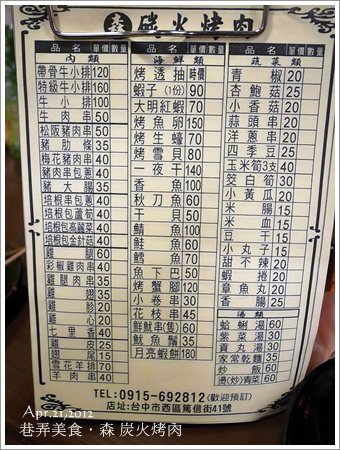 森 碳火烤肉
品名 單價 數量 品名 單價 數量 品名 單價 數量
肉類
帶骨牛小排 120
特級牛小排 160
牛小排 100
牛肉串 50
松阪豬肉串 50
豬肋條 35
梅花豬肉串 35
豬肉串 35
豬大腸 35
培根串包蔥 40
培根包蘆筍 40
培根包高麗菜 40
培根包金針菇 40
雞腿 60
彩椒雞肉串 40
雞腿肉串 35
雞翅 35
雞胗 20
雞心 20
七里香 40
雞皮 25
翅尾 25
雪花羊排
羊肉串 40
海鮮類
烤透抽 時價
蝦子(1份) 90
大明紅蝦 70
烤魚卵 150
烤生蠔 70
烤雪貝 80
一夜干 140
香魚 70
秋刀魚 60
干貝 50
鯖魚 60
鮭魚 60
鱈魚 70
魚下巴 50
烤蟹腳 120
小卷串 30
花枝串 50
鮮魷串(隻) 60
魷魚鬚 35
月亮蝦餅 180
蔬菜類
青椒 20
杏鮑菇 25
小香菇 20
蒜頭串 20
洋蔥串 20
四季豆 25
玉米筍3支 40
筊白筍 30
小黃瓜 20
米腸 20
米血 20
豆干 15
小丸子 20
甜不辣 20
蝦捲 20
章魚丸 20
香腸 25
湯類
蛤蜊湯 60
紫菜湯 30
貢丸湯 30
家常乾麵 35
炒飯 60
燙(炒)青菜
TEL:0915-692812(歡迎預訂)
店址:台中市西區篤信街41號
Apr.21,2012
巷弄美食．森 炭火烤肉